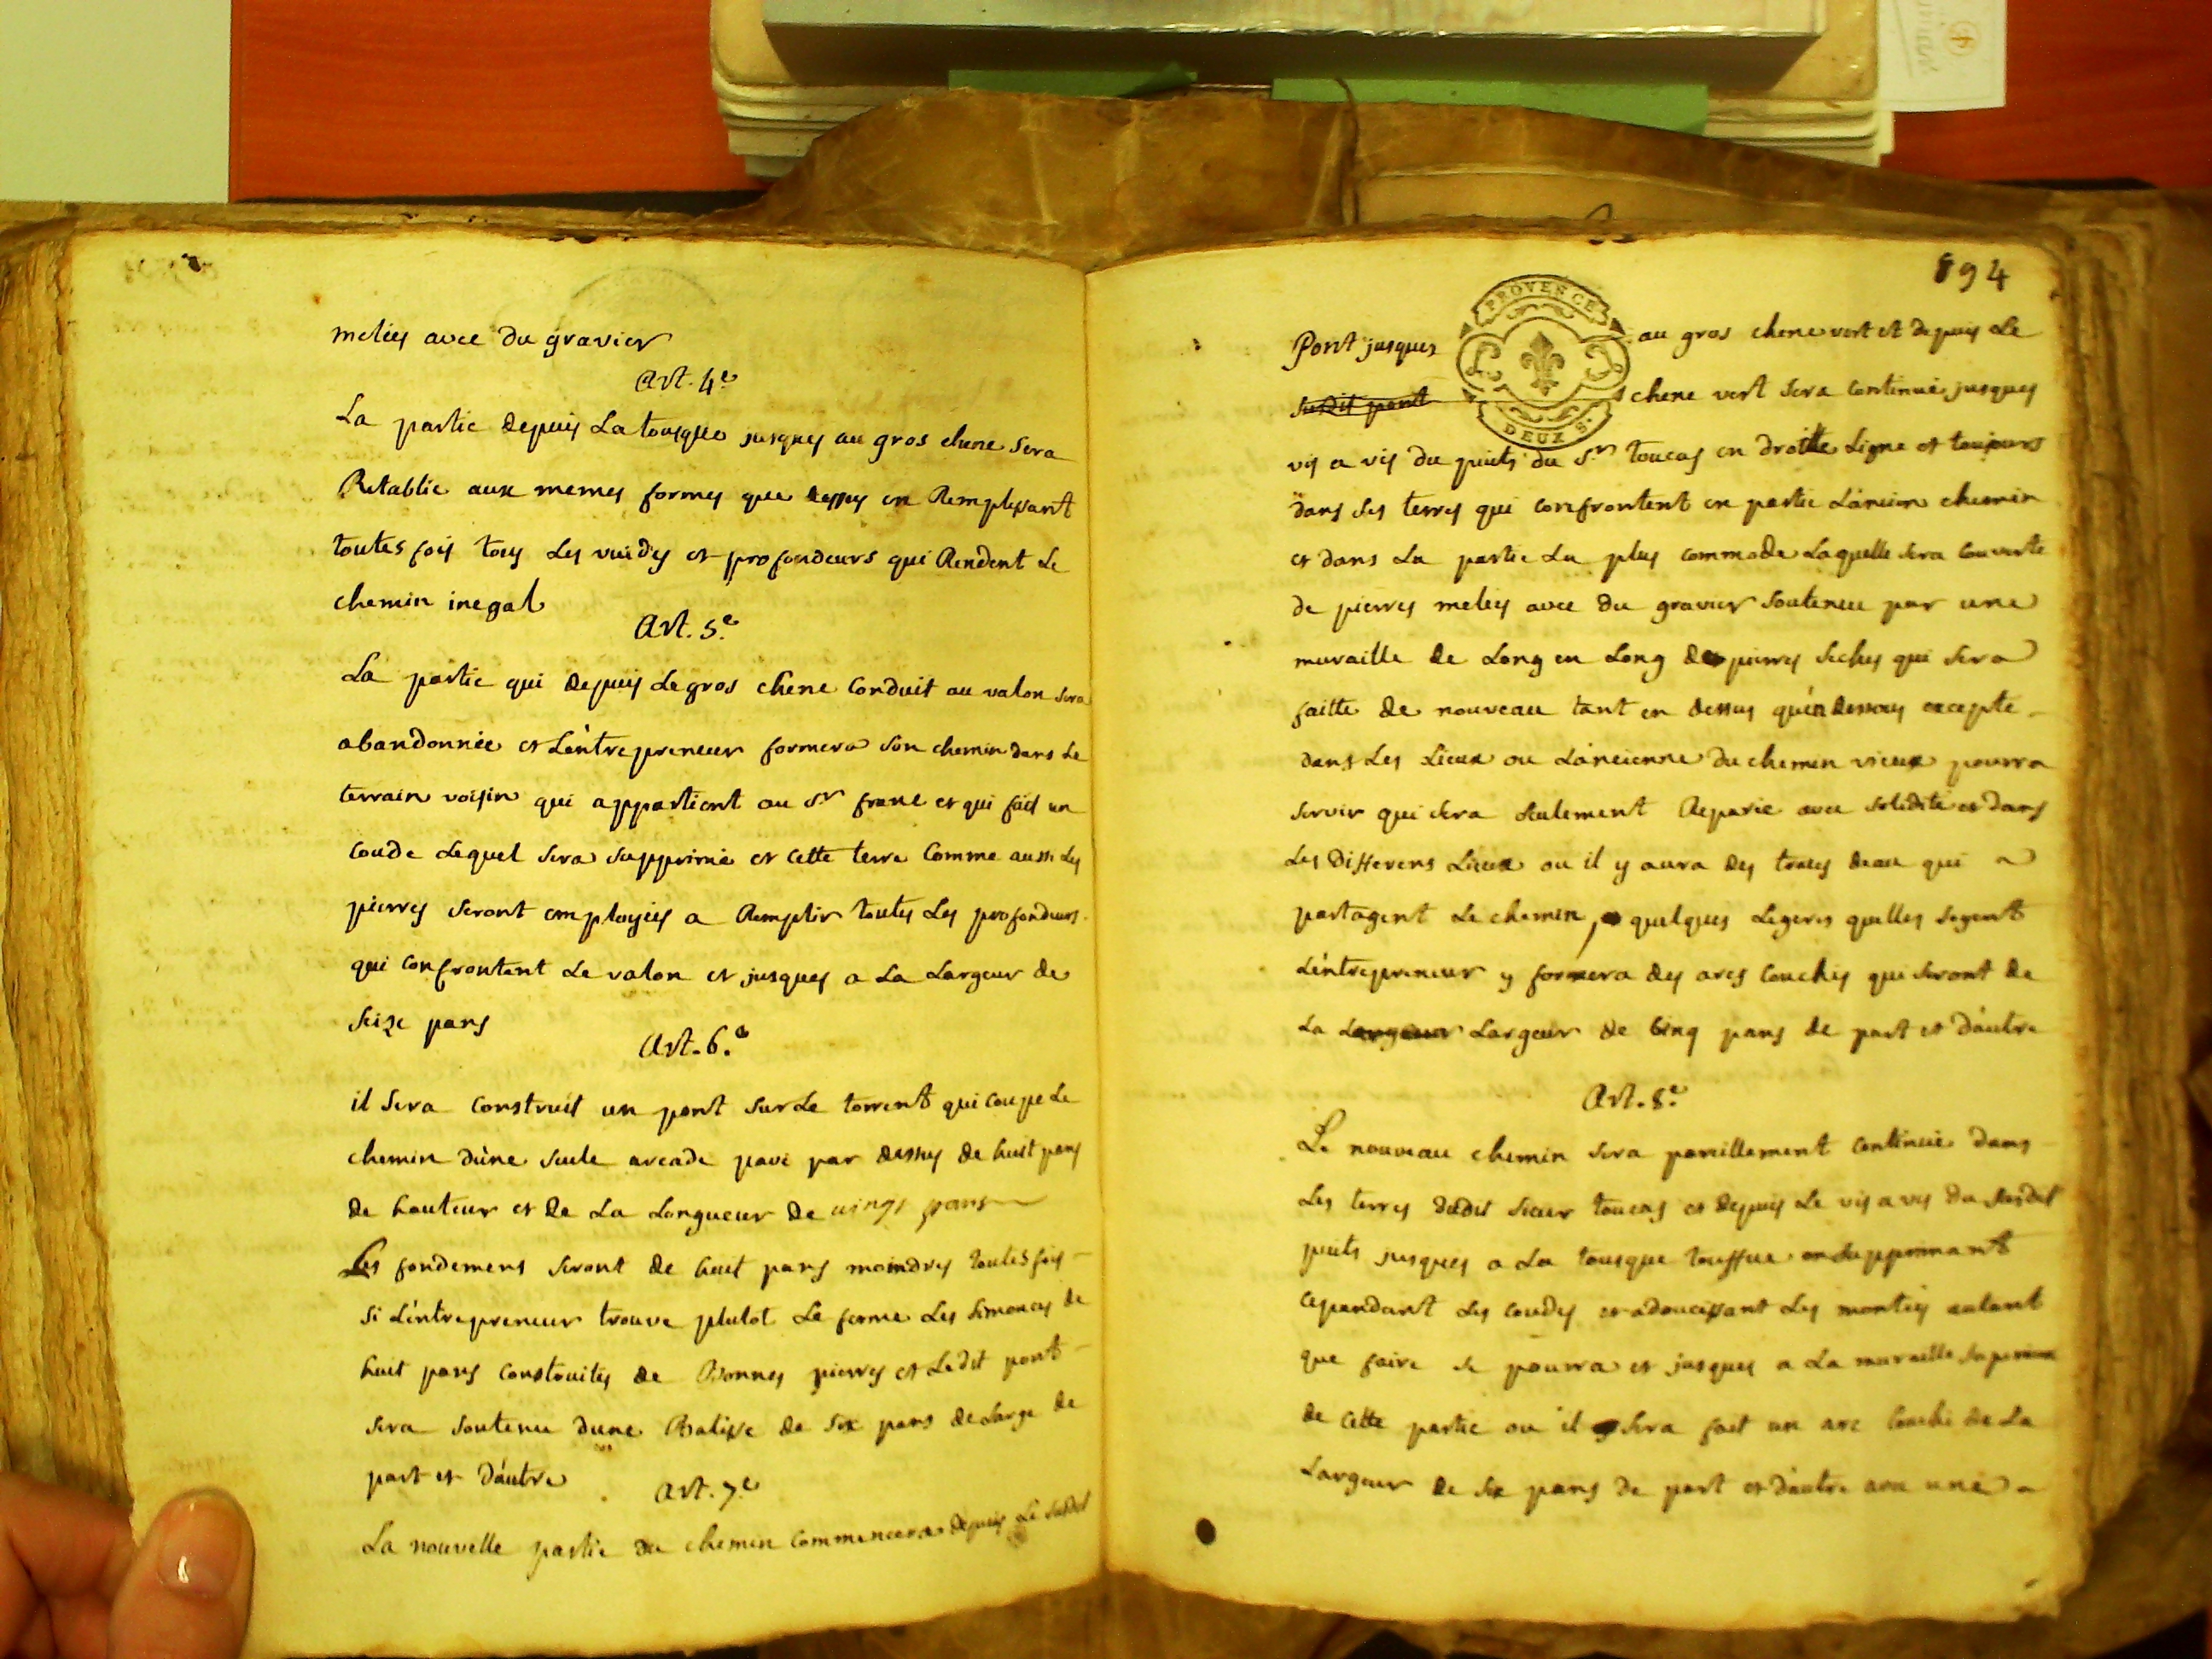 melées avec du gravier
Art. 4.e
La partie depuis La tousque jusques au gros chene sera
Retablie aux memes formes que dessus en Remplissant
toutes fois tous Les vuides et profondeurs qui Rendent Le
chemin inegal
Art. 5.e
La partie qui depuis Le gros chene Conduit au valon sera
abandonnée et L'entrepreneur formera son chemin dans Le
terrain voisin qui appartient au Sr franc et qui fait un
Coude Lequel sera supprimé et Cette terre Comme aussi Les
pierres seront employées a Remplir toutes Les profondeurs
qui Confrontent Le valon et jusques a La Largeur de
seize pans
Art. 6.e
il sera Construit un pont sur Le torrent qui Coupe Le
chemin d'une seule arcade pavé par dessus de huit pans
de hauteur et de La Longueur de vingt pans
Les fondemens seront de huit pans moindres toutes fois
si L'entrepreneur trouve plutot Le ferme Les de
huit pans Construites de Bonnes pierres et Ledit pont
sera soutenu dune Batisse de six pans de Large de
part et d'autre
Art. 7.e
La nouvelle partie du chemin Commencera depuis Le susdit
894
PROVENCE
DEUX S.
Pont jusques au gros chene vert et depuis Le
susdit pont chene vert sera Continué jusques
vis a vis du puits du Sr toucas en droitte Ligne et toujours
dans ses terres qui confrontent en partie L'ancien chemin
et dans La partie La plus commode Laquelle sera Couverte
de pierres melées avec du gravier soutenue par une
muraille de Long en Long de pierres seches qui sera
faitte de nouveau tant en dessus qu'en dessous excepté
dans Les Lieux ou L'ancienne du chemin vieux pourra
servir qui sera seulement Reparée avec solidité et dans
Les Differens Lieux ou il y aura des traces deau qui
partagent Le chemin, quelques Legeres quelles soyent
L'entrepreneur y formera des arcs Couchés qui seront de
La Largeur Largeur de Cinq pans de part et d'autre
Art. 8.e
Le nouveau chemin sera pareillement Continué dans
Les terres dudit sieur toucas et depuis Le vis a vis du susdit
puits jusques a La tousque touffue en supprimant
Cependant Les Coudes et adoucissant Les montées autant
que faire se pourra et jusques a La muraille
de Cette partie ou il sera fait un arc Couché de La
Largeur de six pans de part et d'autre avec une